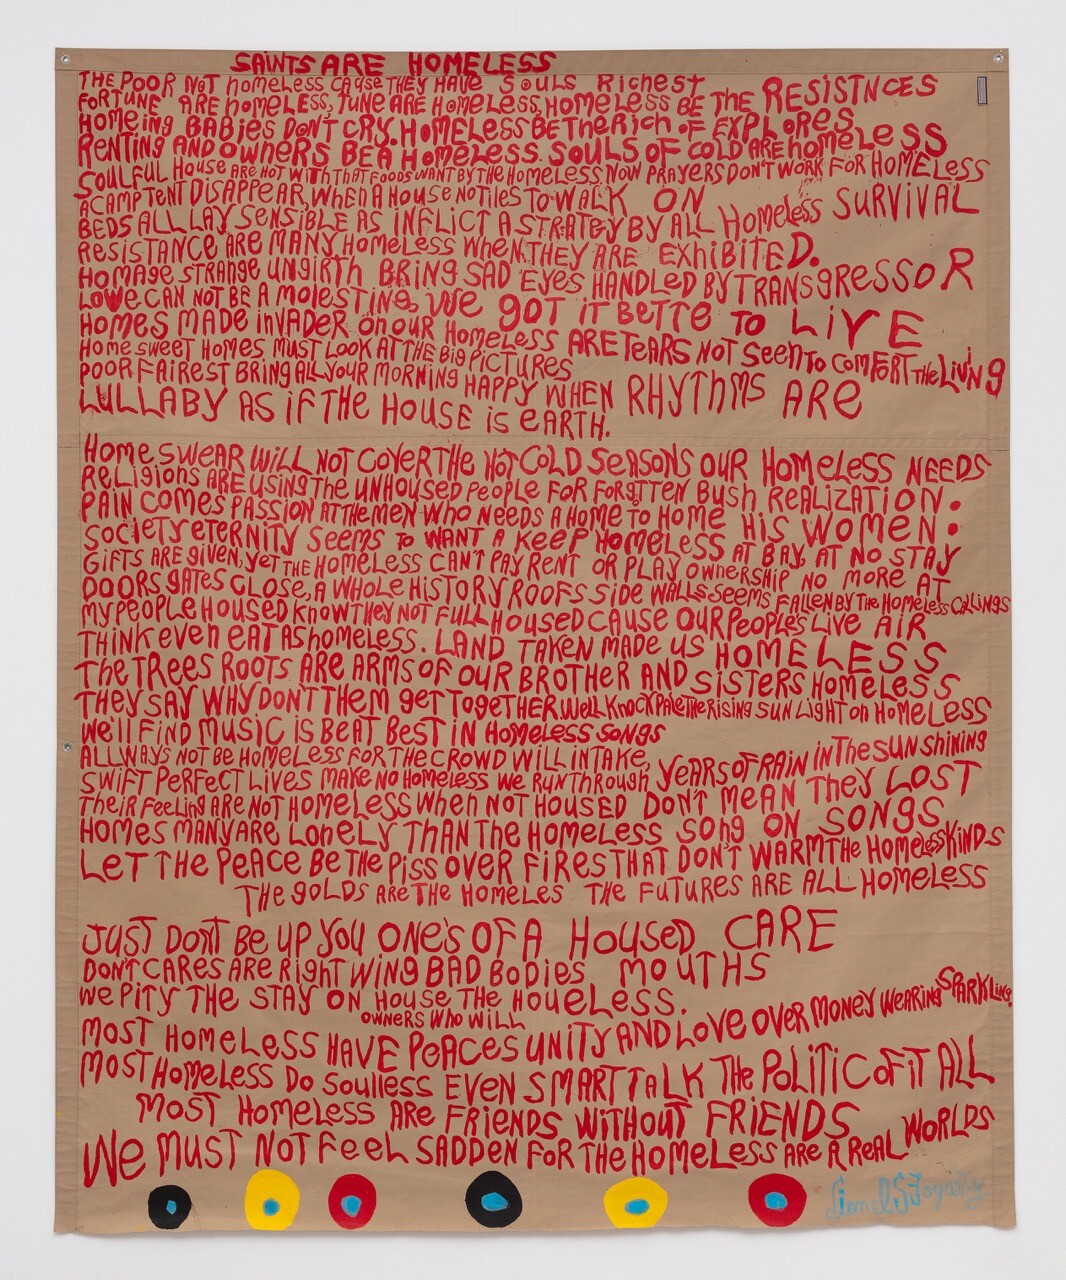 SAINTS ARE HOMELESS
THE POOR NOT homeless CAUSE THEY HAVE SOULS RICHEST
FORTUNE ARE HOMELESS, TUNE ARE HOMELESS, HOMELESS BE THE RESISTNCES
HOMEING BABIES DON'T CRY. HOMELESS BE THE RICH OF EXPLORES
RENTING AND OWNERS BE A HOMELESS. SOULS OF COLD ARE HOMELESS
SOULFUL HOUSE ARE HOT WITH THAT FOODS WANT BY THE HOMELESS NOW PRAYERS DON'T WORK FOR HOMELESS
A CAMP TENT DISAPPEAR, WHEN A HOUSE NO TILES TO WALK ON SURVIVAL
BEDS ALL LAY SENSIBLE AS INFLICT A STRATEGY BY ALL HOMELESS
RESISTANCE ARE MANY HOMELESS WHEN THEY ARE EXHIBITED.
HOMAGE STRANGE UNGIRTH BRING SAD EYES HANDLED BY TRANSGRESSOR
LOVE CAN NOT BE A MOLESTING, WE GOT IT BETTE TO LIVE
HOMES MADE INVADER ON OUR HOMELESS ARE TEARS NOT SEEN TO COMFORT THE LIVING
HOME SWEET HOMES MUST LOOK AT THE BIG PICTURES
POOR FAIREST BRING ALL YOUR MORNING HAPPY WHEN RHYTHMS ARE
LULLABY AS IF THE HOUSE IS EARTH.
HOME SWEAR WILL NOT COVER THE HOT COLD SEASONS OUR HOMELESS NEEDS
RELIGIONS ARE USING THE UNHOUSED PEOPLE FOR FORGTTEN BUSH REALIZATION.
PAIN COMES PASSION AT THE MEN WHO NEEDS A HOME TO HOME HIS WOMEN:
SOCIETYS ETERNITY SEEMS TO WANT A KEEP HOMELESS AT BAY, AT NO STAY
GIFTS ARE GIVEN, YET THE HOMELESS CAN'T PAY RENT OR PLAY OWNERSHIP NO MORE AT
DOORS GATES CLOSE, A WHOLE HISTORY ROOFS SIDE WALLS SEEMS FALLEN BY THE HOMELESS CALLINGS
MY PEOPLE HOUSED KNOW THEY NOT FULL HOUSED CAUSE OUR PEOPLES LIVE AIR
THINK EVEN EAT AS HOMELESS. LAND TAKEN MADE US HOMELESS
THE TREES ROOTS ARE ARMS OF OUR BROTHER AND SISTERS HOMELESS
THEY SAY WHY DON'T THEM GET TOGETHER WELL KNOCK PALE THE RISING SUN LIGHT ON HOMELESS
WE'll FIND MUSIC IS BEAT BEST IN HOMELESS SONGS
ALLWAYS NOT BE HOMELESS FOR THE CROWD WILL INTAKE, YEARS OF RAIN IN THE SUN SHINING
SWIFT PERFECT LIVES MAKE NO HOMELESS WE RUN THROUGH
THEIR FEELING ARE NOT HOMELESS WHEN NOT HOUSED DON'T MEAN THEY LOST
HOMES MANY ARE LONELY THAN THE HOMELESS SONG ON SONGS
LET THE PEACE BE THE PISS OVER FIRES THAT DON'T WARM THE HOMELESS KINDS
THE GOLDS ARE THE HOMELES THE FUTURES ARE ALL HOMELESS
JUST DON'T BE UP YOU ONE'S OF A HOUSED CARE
DON'T CARES ARE RIGHT WING BAD BODIES MOUTHS
WE PITY THE STAY ON HOUSE THE HOUELESS.
OWNERS WHO WILL
MOST HOMELESS HAVE PEACES UNITY AND LOVE OVER MONEY WEARING SPARKLING,
MOST HOMELESS DO SOULLESS EVEN SMART TALK THE POLITIC OF IT ALL
MOST HOMELESS ARE FRIENDS WITHOUT FRIENDS
WE MUST NOT FEEL SADDEN FOR THE HOMELESS ARE A REAL WORLDS
Lionel G Fogarty